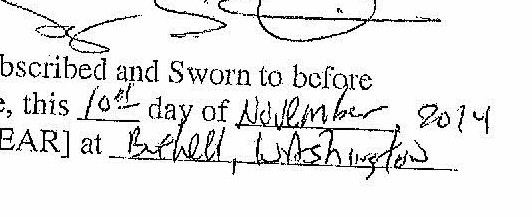 bscribed and Sworn to before
e, this 10th day of November, 2014
EAR] at Bothell, Washington